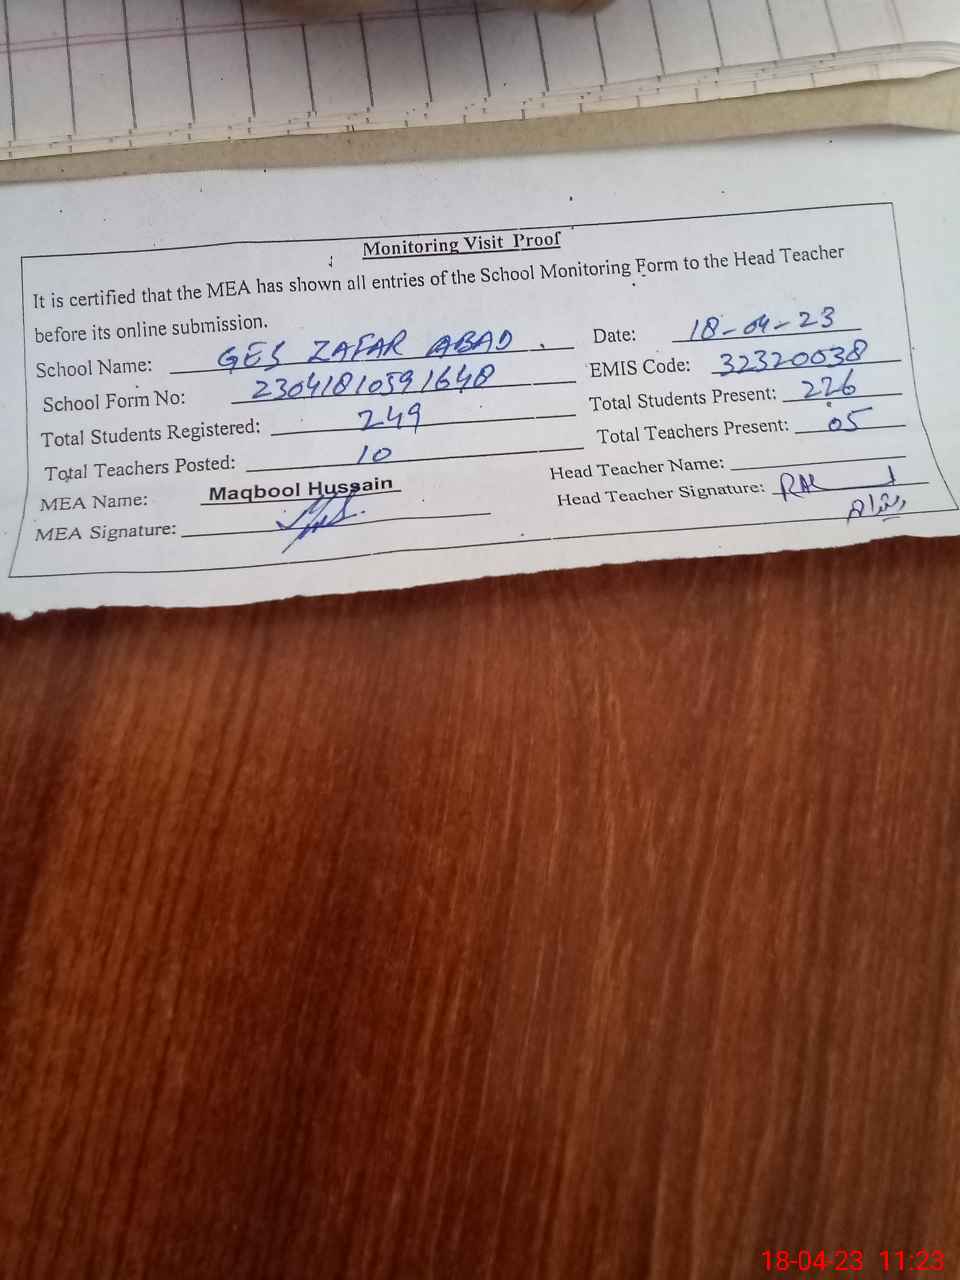 Monitoring Visit Proof
It is certified that the MEA has shown all entries of the School Monitoring Form to the Head Teacher
before its online submission.
School Name: GES ZAFAR ABAD Date: 18-04-23
School Form No: 23041810591648 EMIS Code: 32320038
Total Students Registered: 249 Total Students Present: 226
Total Teachers Posted: 10 Total Teachers Present: 05
MEA Name: Maqbool Hussain Head Teacher Name:
MEA Signature: Head Teacher Signature:
18-04-23 11:23